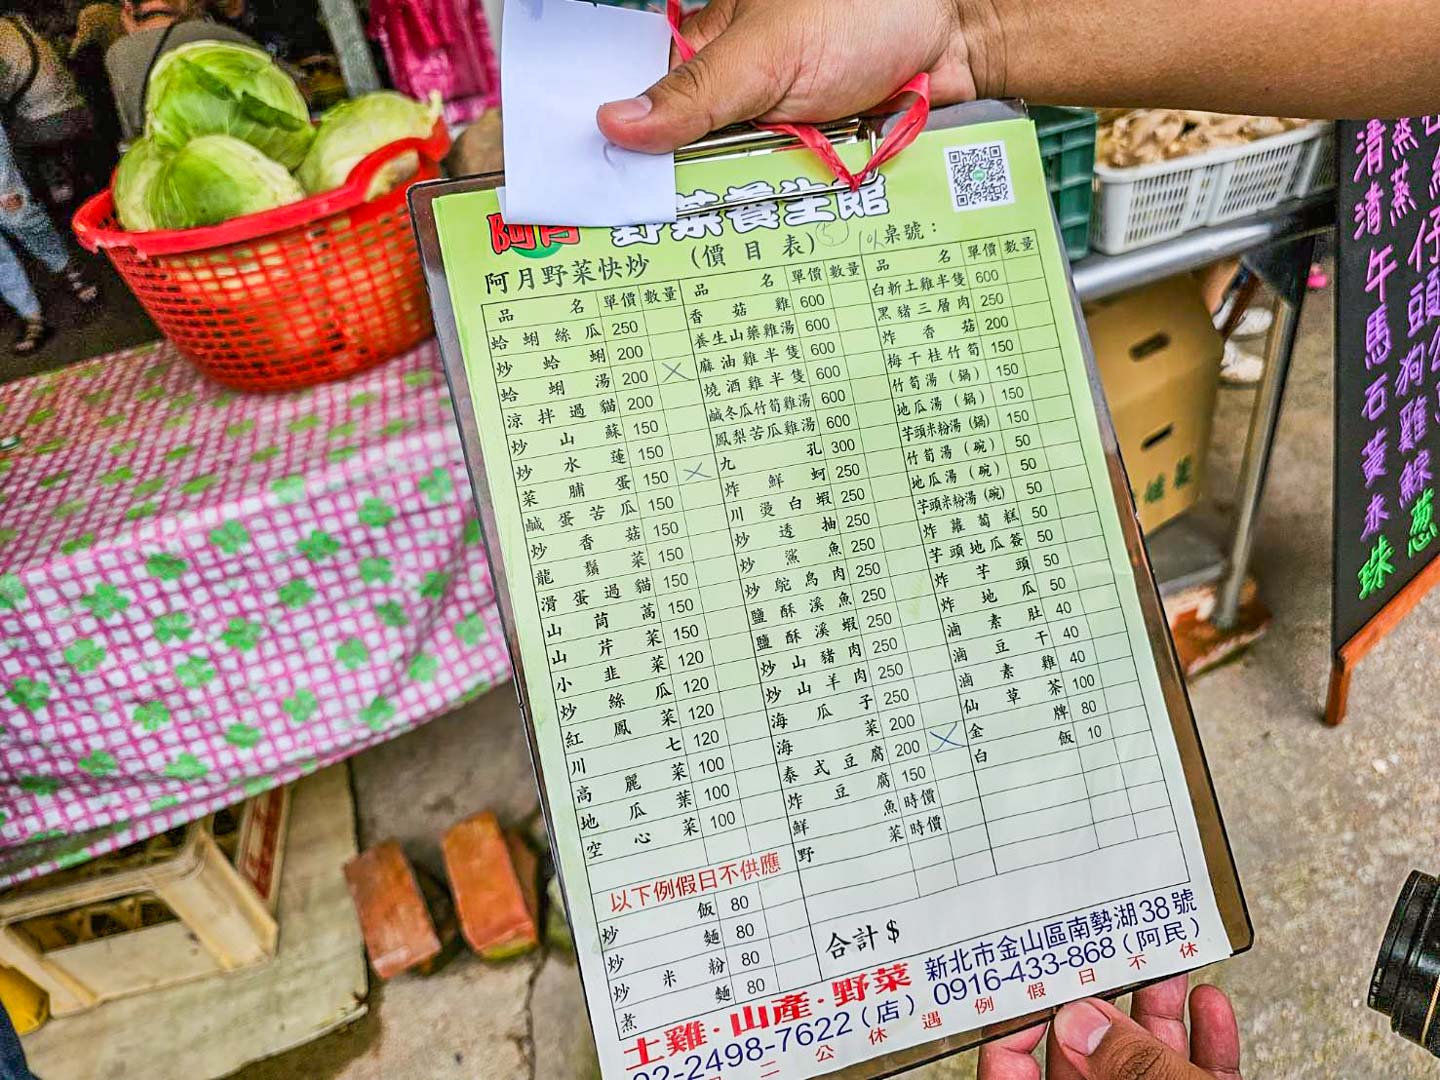 阿月 野菜養生館
阿月野菜快炒 (價目表) 桌號：
品名 單價 數量
蛤蜊絲瓜 250
炒蛤蜊 200
蛤蜊湯 200
涼拌過貓 200
炒山蘇 150
炒水蓮 150
菜脯蛋 150
鹹蛋苦瓜 150
炒香菇 150
龍鬚菜 150
滑蛋過貓 150
山茼蒿 150
山芹菜 150
小韭菜 120
炒絲瓜 120
紅鳳菜 120
川七 120
高麗菜 100
地瓜葉 100
空心菜 100
以下例假日不供應
炒飯 80
炒麵 80
炒米粉 80
煮麵 80
品名 單價 數量
香菇雞 600
養生山藥雞湯 600
麻油雞半隻 600
燒酒雞半隻 600
鹹冬瓜竹筍雞湯 600
鳳梨苦瓜雞湯 600
九孔 300
炸鮮蚵 250
川燙白蝦 250
炒透抽 250
炒鯊魚 250
炒鴕鳥肉 250
鹽酥溪魚 250
鹽酥溪蝦 250
炒山豬肉 250
炒山羊肉 250
海瓜子 250
海菜 200
泰式豆腐 200
炸豆腐 150
鮮魚 時價
野菜 時價
合計$
品名 單價 數量
白斬土雞半隻 600
黑豬三層肉 250
炸香菇 200
梅干桂竹筍 150
竹筍湯(鍋) 150
地瓜湯(鍋) 150
芋頭米粉湯(鍋) 150
竹筍湯(碗) 50
地瓜湯(碗) 50
芋頭米粉湯(碗) 50
炸蘿蔔糕 50
芋頭地瓜簽 50
炸芋頭 50
炸地瓜 50
滷素肚 40
滷豆干 40
滷素雞 40
仙草茶 100
金牌 80
白飯 10
土雞·山產·野菜 新北市金山區南勢湖38號
02-2498-7622(店) 0916-433-868(阿民)
二公休遇例假日不休